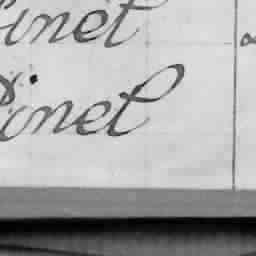 Pinet
Pinet